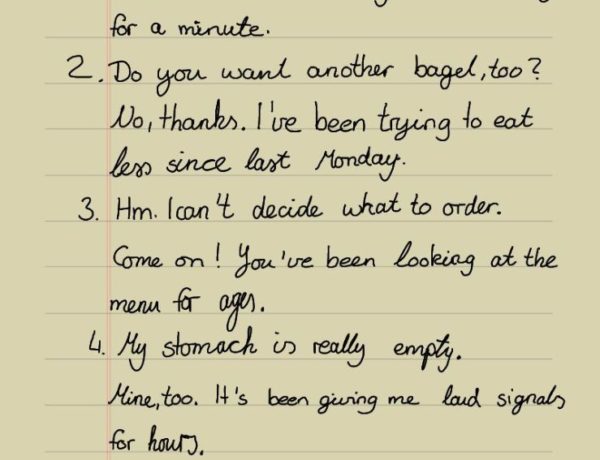 for a minute.
2. Do you want another bagel, too?
No, thanks. I've been trying to eat
less since last Monday.
3. Hm. I can't decide what to order.
Come on! You've been looking at the
menu for ages.
4. My stomach is really empty.
Mine, too. It's been giving me loud signals
for hours.